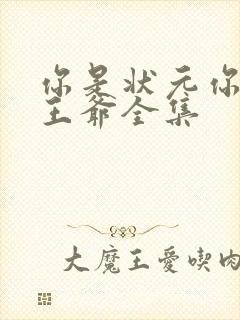 你是状元你
王爺全集
大魔王愛喫肉